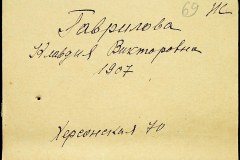 69 Ж
Гаврилова
Клавдия Викторовна
1907
Херсонская 70